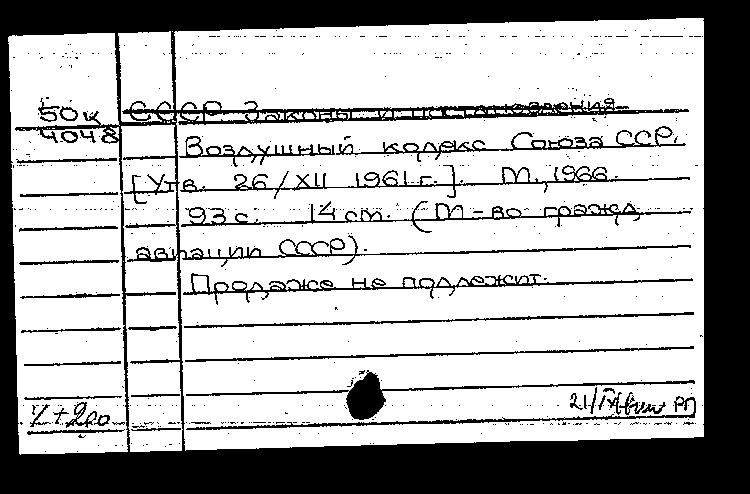 50к СССР Законы и постановления
4048 Воздушный кодекс Союза ССР.
[Утв. 26/XII 1961 г.]. М., 1966.
93 с. 14 см. (М-во гражд.
авиации СССР).
Продаже не подлежит.
21/IX РП